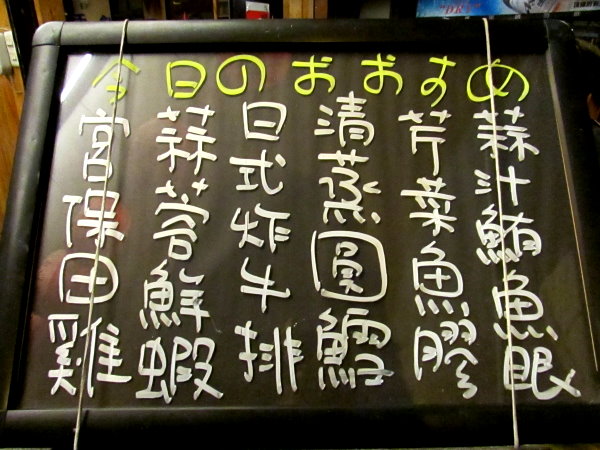 今日のおおすめ
蒜汁鮪魚眼
芹菜魚膠
清蒸圓鱈
日式炸牛排
蒜蓉鮮蝦
宮保田雞